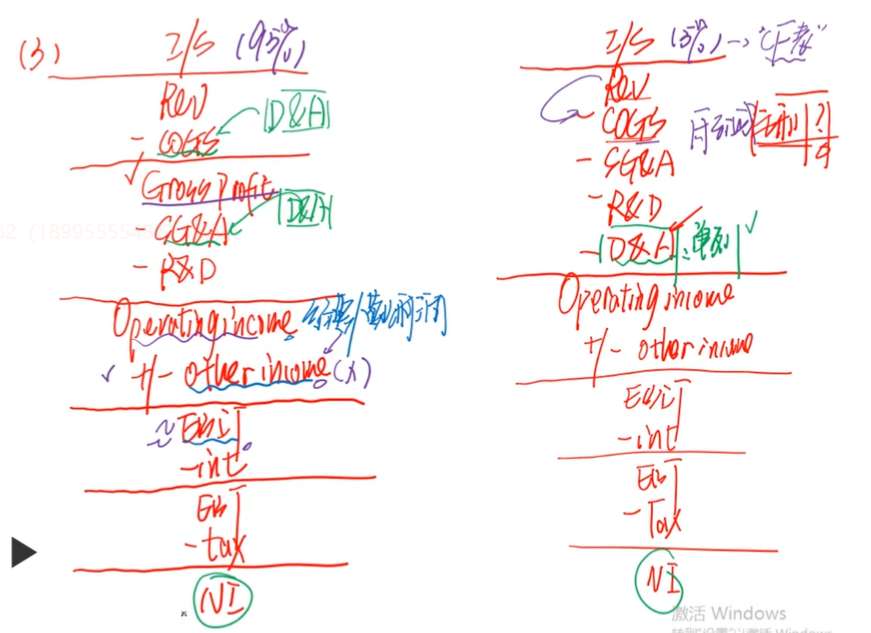 (3) I/S (95%)
Rev
- COGS D&A
Gross Profit
- SG&A D&A
- R&D
Operating income / 营业利润
+/- other income (x)
≈ EBIT
- int
EBT
- tax
NI
I/S (5%) → "CF表"
Rev
COGS
毛利 ?
- SG&A
- R&D
- D&A : 单列 ✓
Operating income
+/- other income
EBIT
- int
EBT
- Tax
NI
激活 Windows